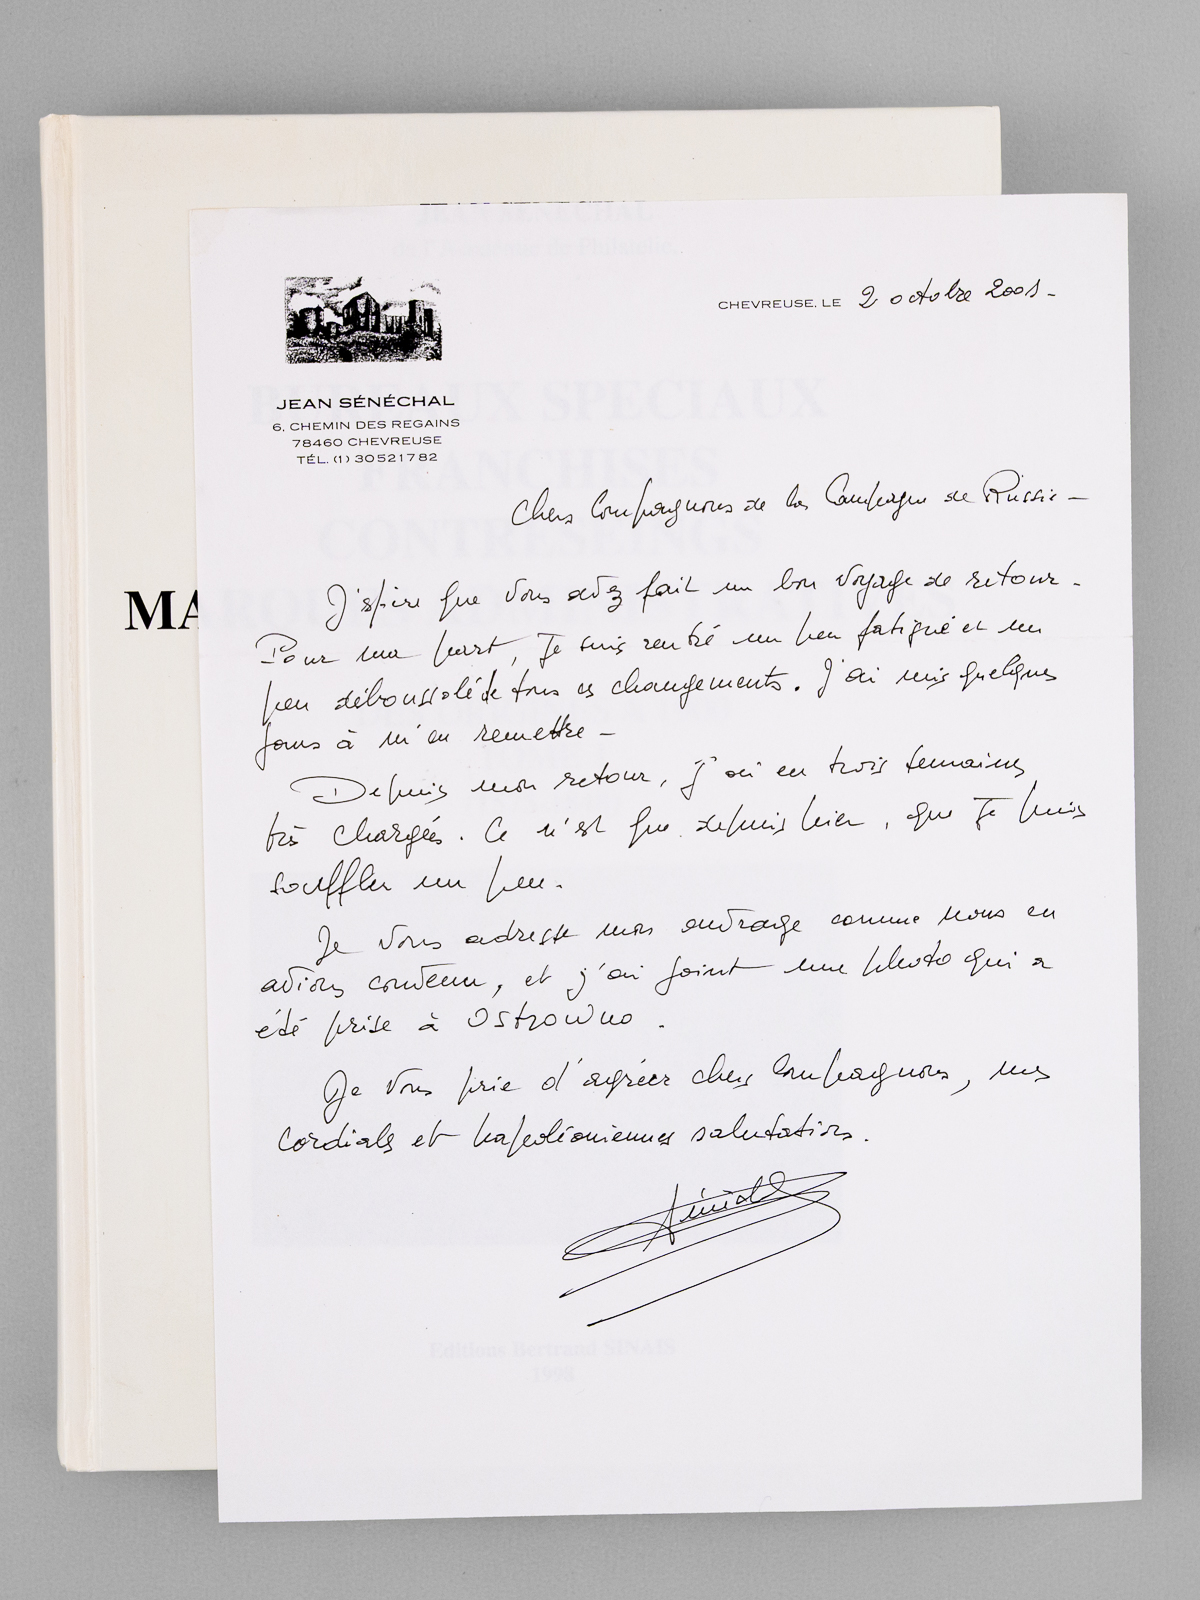 JEAN SENECHAL
de l'Académie de Philatélie
BUREAUX SPECIAUX
FRANCHISES
CONTRESEINGS
MA
Editions Bertrand SINAIS
1998
CHEVREUSE, LE 2 octobre 2001-
JEAN SÉNÉCHAL
6, CHEMIN DES REGAINS
78460 CHEVREUSE
TÉL. (1) 30521782
Chers Compagnons de la Campagne de Russie-
J'espère que vous avez fait un bon voyage de retour-
Pour ma part, je suis rentré un peu fatigué et un
peu déboussolé de tous ces changements. J'ai mis quelques
jours à m'en remettre-
Depuis mon retour, j'ai eu trois semaines
très chargées. Ce n'est que depuis hier, que je puis
souffler un peu.
Je vous adresse mon ouvrage comme nous en
avions convenu, et j'ai joint une photo qui a
été prise à Ostrowno.
Je vous prie d'agréer chers Compagnons, mes
cordiales et napoléoniennes salutations.